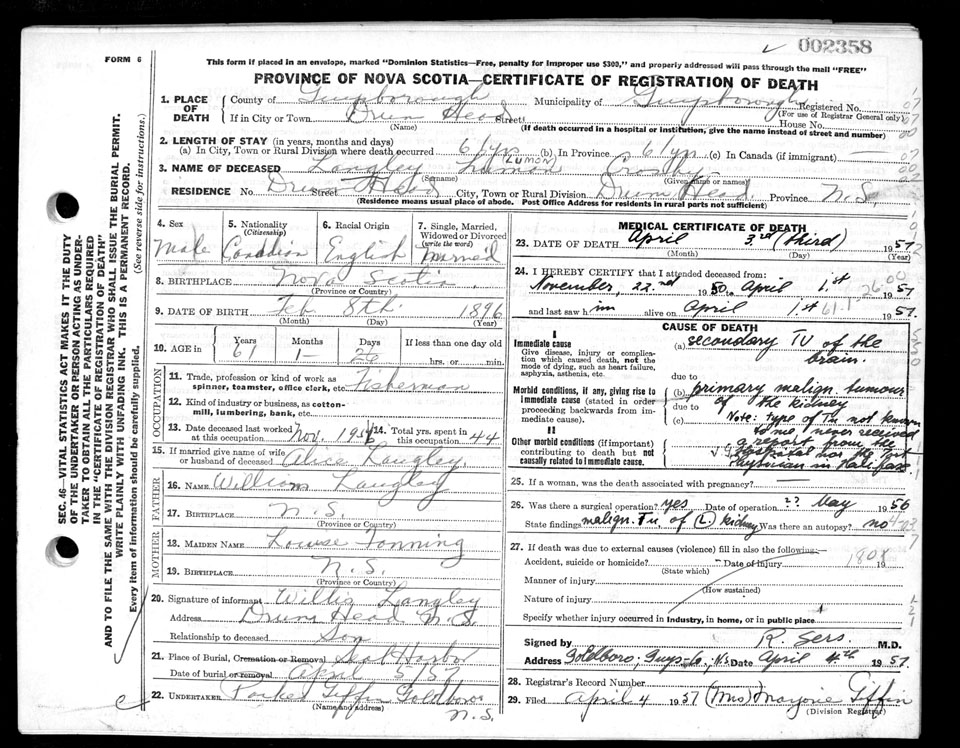 002358
FORM 6
This form if placed in an envelope, marked "Dominion Statistics—Free, penalty for improper use $300," and properly addressed will pass through the mail "FREE"
PROVINCE OF NOVA SCOTIA—CERTIFICATE OF REGISTRATION OF DEATH
SEC. 46—VITAL STATISTICS ACT MAKES IT THE DUTY
OF THE UNDERTAKER OR PERSON ACTING AS UNDER-
TAKER TO OBTAIN ALL THE PARTICULARS REQUIRED
IN THE "CERTIFICATE OF REGISTRATION OF DEATH"
AND TO FILE THE SAME WITH THE DIVISION REGISTRAR WHO SHALL ISSUE THE BURIAL PERMIT.
WRITE PLAINLY WITH UNFADING INK. THIS IS A PERMANENT RECORD.
Every item of information should be carefully supplied. (See reverse side for instructions.)
1. PLACE OF DEATH County of Guysborough Municipality of Guysborough Registered No.
(For use of Registrar General only)
If in City or Town Drum Head Street House No.
(Name) (If death occurred in a hospital or institution, give the name instead of street and number)
2. LENGTH OF STAY (in years, months and days)
(a) In City, Town or Rural Division where death occurred 61 yrs (b) In Province 61 yrs (c) In Canada (if immigrant)
LUMON
3. NAME OF DECEASED Langley Luman Crosby
(Surname) (Given name or names)
RESIDENCE No. Drum Head Street City, Town or Rural Division Drum Head Province N.S.
(Residence means usual place of abode. Post Office Address for residents in rural parts not sufficient)
4. Sex 5. Nationality (Citizenship) 6. Racial Origin 7. Single, Married, Widowed or Divorced (write the word)
Male Canadian English Married
8. BIRTHPLACE Nova Scotia
(Province or Country)
9. DATE OF BIRTH Feb 8th 1896
(Month) (Day) (Year)
10. AGE in Years Months Days If less than one day old
61 1 26 hrs. or min.
OCCUPATION
11. Trade, profession or kind of work as spinner, teamster, office clerk, etc. Fisherman
12. Kind of industry or business, as cotton-mill, lumbering, bank, etc.
13. Date deceased last worked at this occupation Nov. 1956 14. Total yrs. spent in this occupation 44
15. If married give name of wife or husband of deceased Alice Langley
FATHER
16. NAME William Langley
17. BIRTHPLACE N.S.
(Province or Country)
MOTHER
18. MAIDEN NAME Louise Fanning
19. BIRTHPLACE N.S.
(Province or Country)
20. Signature of informant Willis Langley
Address Drum Head N.S.
Relationship to deceased Son
21. Place of Burial, Cremation or Removal Seal Harbor
Date of burial or removal April 5/57
22. UNDERTAKER Parker Giffin Goldboro
(Name and address) N.S.
MEDICAL CERTIFICATE OF DEATH
23. DATE OF DEATH April 3rd (third) 1957
(Month) (Day) (Year)
24. I HEREBY CERTIFY that I attended deceased from:
November, 22nd 1950 to April 1st 1957
and last saw him alive on April 1st 1957.
CAUSE OF DEATH
I
Immediate cause
Give disease, injury or complication which caused death, not the mode of dying, such as heart failure, asphyxia, asthenia, etc.
(a) secondary TU of the
brain.
due to
Morbid conditions, if any, giving rise to immediate cause (stated in order proceeding backwards from immediate cause).
(b) primary malign. tumour
due to of the kidney
(c) Note: type of Tu not known
to me never received
a report from the
II
Other morbid conditions (if important) contributing to death but not causally related to immediate cause.
physician in Halifax.
25. If a woman, was the death associated with pregnancy?
26. Was there a surgical operation? yes Date of operation ?? May 1956
State findings malign. Tu of (L.) kidney Was there an autopsy? no
27. If death was due to external causes (violence) fill in also the following:
Accident, suicide or homicide? Date of injury 19
(State which)
Manner of injury
(How sustained)
Nature of injury
Specify whether injury occurred in industry, in home, or in public place
Signed by R. Sers. M.D.
Address Goldboro, Guys. Co., N.S. Date April 4th 1957.
28. Registrar's Record Number
29. Filed April 4 1957 (Mrs) Marjorie Giffin
(Division Registrar)